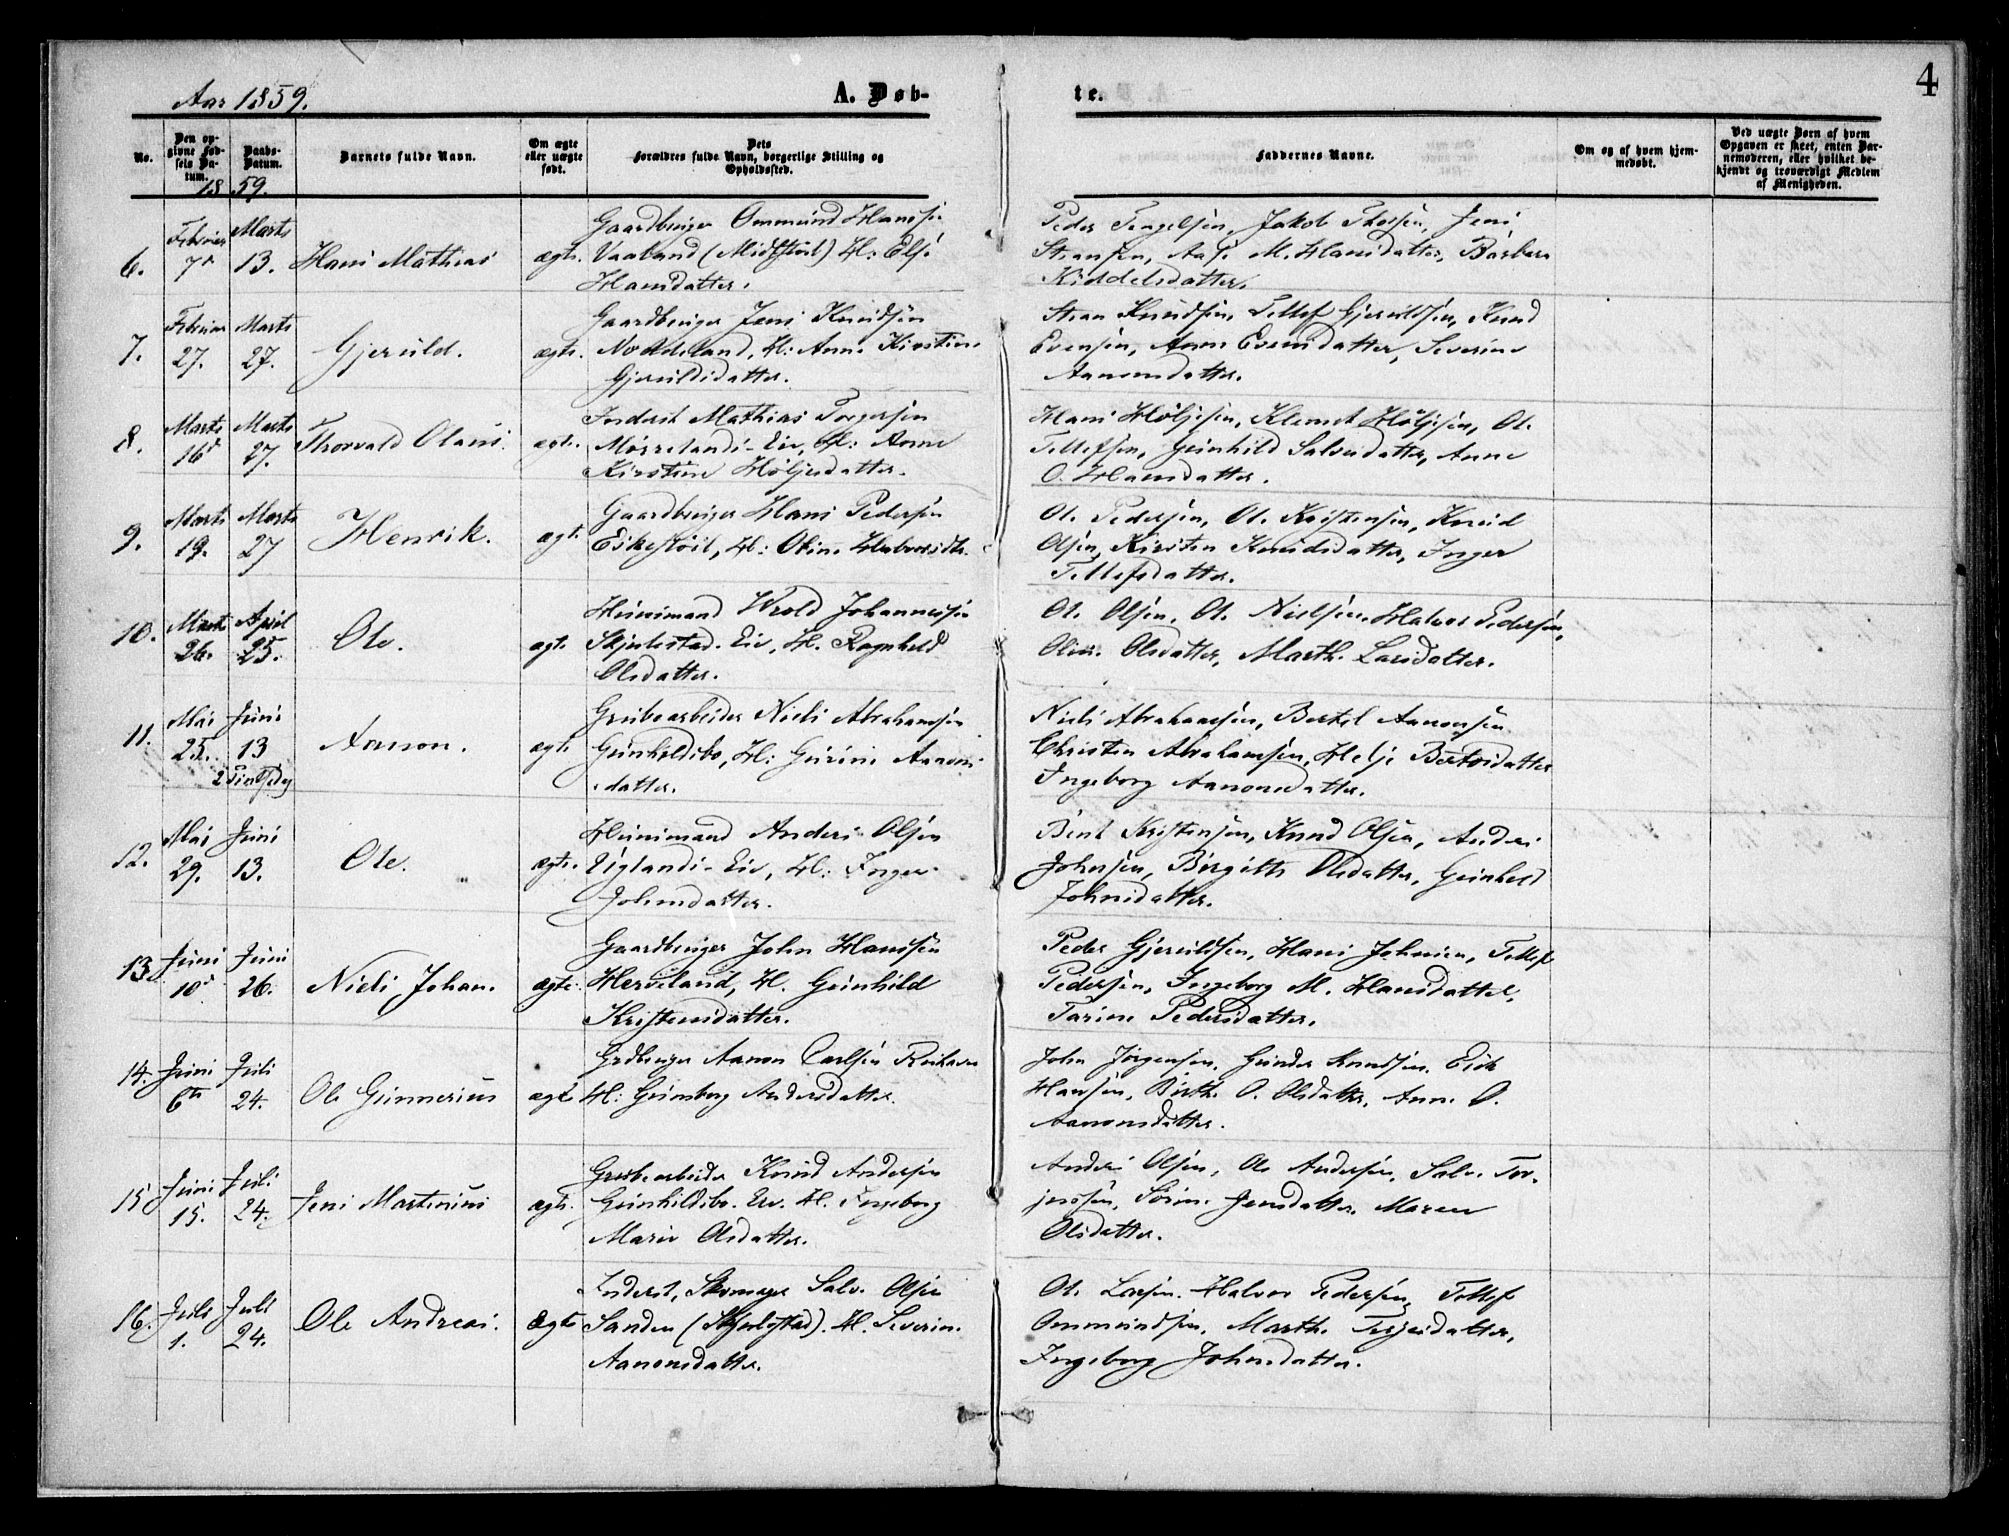 4
Aar 1859.
A. Døb-
te.
No.
Den op-
givne Fød-
sels Da-
tum.
Daabs-
Datum.
Barnets fulde Navn.
Om ægte
eller uægte
født.
Dets
Forældres fulde Navn, borgerlige Stilling og
Opholdssted.
Faddernes Navne.
Om og af hvem hjem-
medøbt.
Ved uægte Børn af hvem
Opgaven er skeet, enten Bar-
nemoderen, eller hvilket be-
kjendt og troværdigt Medlem
af Menigheden.
18 59.
6. Februar 7de Marts 13. Hans Mathias ægte.
Gaardbruger Ommund Hansen
Vaaland H: Else
Hansdatter.
Peder Tengelsen, Jakob Thorsen, Jens
M. Hansdatter, Barbara
Kiddelsdatter.
7. Februar 27. Marts 27. Gjeruld. ægte.
Gaardbruger Jens Knudsen
H: Anne Kirstine
Gjeruldsdatter.
Stian Knudsen, Tellef Gjeruldsen, Knud
Evensen, Anne Evensdatter, Severine
Aanonsdatter.
8. Marts 16d Marts 27. Thorvald Olaus. ægte.
Inderst Mathias Torgersen
Eie, H: Anne
Kirstine Høljesdatter.
Hans Høljesen, Klemet Høljesen, Ole
Tellefsen, Gunhild Salvesdatter, Anne
O. Hansdatter.
9. Marts 19. Marts 27 Henrik. ægte
Gaardbruger Hans Pedersen
Eikestøil, H: Oline
Ole Pedersen, Ole Kristensen, Knud
Olsen, Kirsten Knudsdatter, Inger
Tellefsdatter.
10. Marts 26. April 25. Ole. ægte
Huusmand Wrold Johannessen
Skjulestad. Eie, H. Ragnhild
Olsdatter.
Ole Olsen, Ole Nielsen, Halvor Pedersen,
Olsdatter, Marthe Larsdatter.
11. Mai 25. Juni 13 2 Pintsedag Aanon. ægte
Grubearbeider Niels Abrahamsen
Gunhildsbo, H: Gurine Aanons-
datter.
Niels Abrahamsen, Bertel Aanonsen
Christen Abrahamsen, Helje
Ingeborg Aanonsdatter.
12. Mai 29. Juni 13. Ole. ægte.
Huusmand Anders Olsen
Eiglands-Eie, H: Inger
Johnsdatter.
Bent Kristensen, Knud Olsen, Anders
Johnsen, Birgitte Olsdatter, Gunhild
Johnsdatter.
13. Juni 10d Juni 26. Niels Johan. ægte.
Gaardbruger John Hansen
H. Gunhild
Kristensdatter.
Peder Gjeruldsen, Hans Johnsen, Tellef
Pedersen, Ingeborg M. Hansdatter,
Tarine Pedersdatter.
14. Juni 6te Juli 24. Ole Gunnerius ægte
Grdbruger Aanon Carlsen
H: Gunborg Andersdatter.
John Jørgensen, Gunder Knudsen, Eilev
Hansen, Birthe O. Olsdatter, Anne O.
Aanonsdatter.
15 Juni 15. Juli 24. Jens Martinius ægte.
Grubearbeider Knud Andersen
Gunhildsbo. Eie. H. Ingeborg
Marie Olsdatter.
Anders Olsen, Ole Andersen, Salve Tor-
jussen, Sørine Jensdatter, Maren
Olsdatter.
16. Juli 1. Juli 24. Ole Andreas. ægte
Inderst, Skomager Salve Olsen
Sanden (Skjulestad). H. Severine
Aanonsdatter.
Ole Larsen, Halvor Pedersen, Tellef
Ommundsen, Marthe Terjesdatter,
Ingeborg Johnsdatter.